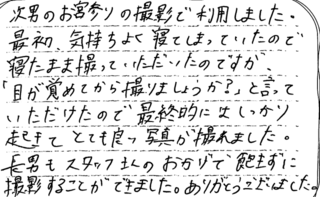 次男のお宮参りの撮影で利用しました。
最初、気持ちよく寝てしまっていたので
寝たまま撮っていただいたのですが、
「目が覚めてから撮りましょうか？」と言って
いただけたので最終的にはしっかり
起きてとても良い写真が撮れました。
長男もスタッフさんのおかげで飽きずに
撮影することができました。ありがとうございました。